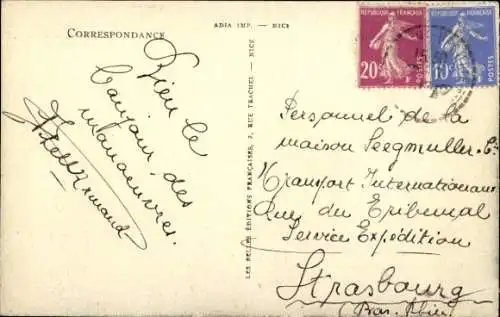 ADIA IMP. — NICE
CORRESPONDANCE
Bien le
bonjour des
manoeuvres.
LES BELLES ÉDITIONS FRANÇAISES, 2, RUE TRACHEL - NICE
RÉPUBLIQUE FRANÇAISE
20c
POSTES
RÉPUBLIQUE FRANÇAISE
POSTES
Personnel de la
maison Seegmuller & Cie
Transport Internationaux
Rue du Tribunal
Service Expédition
Strasbourg
(Bas-Rhin)